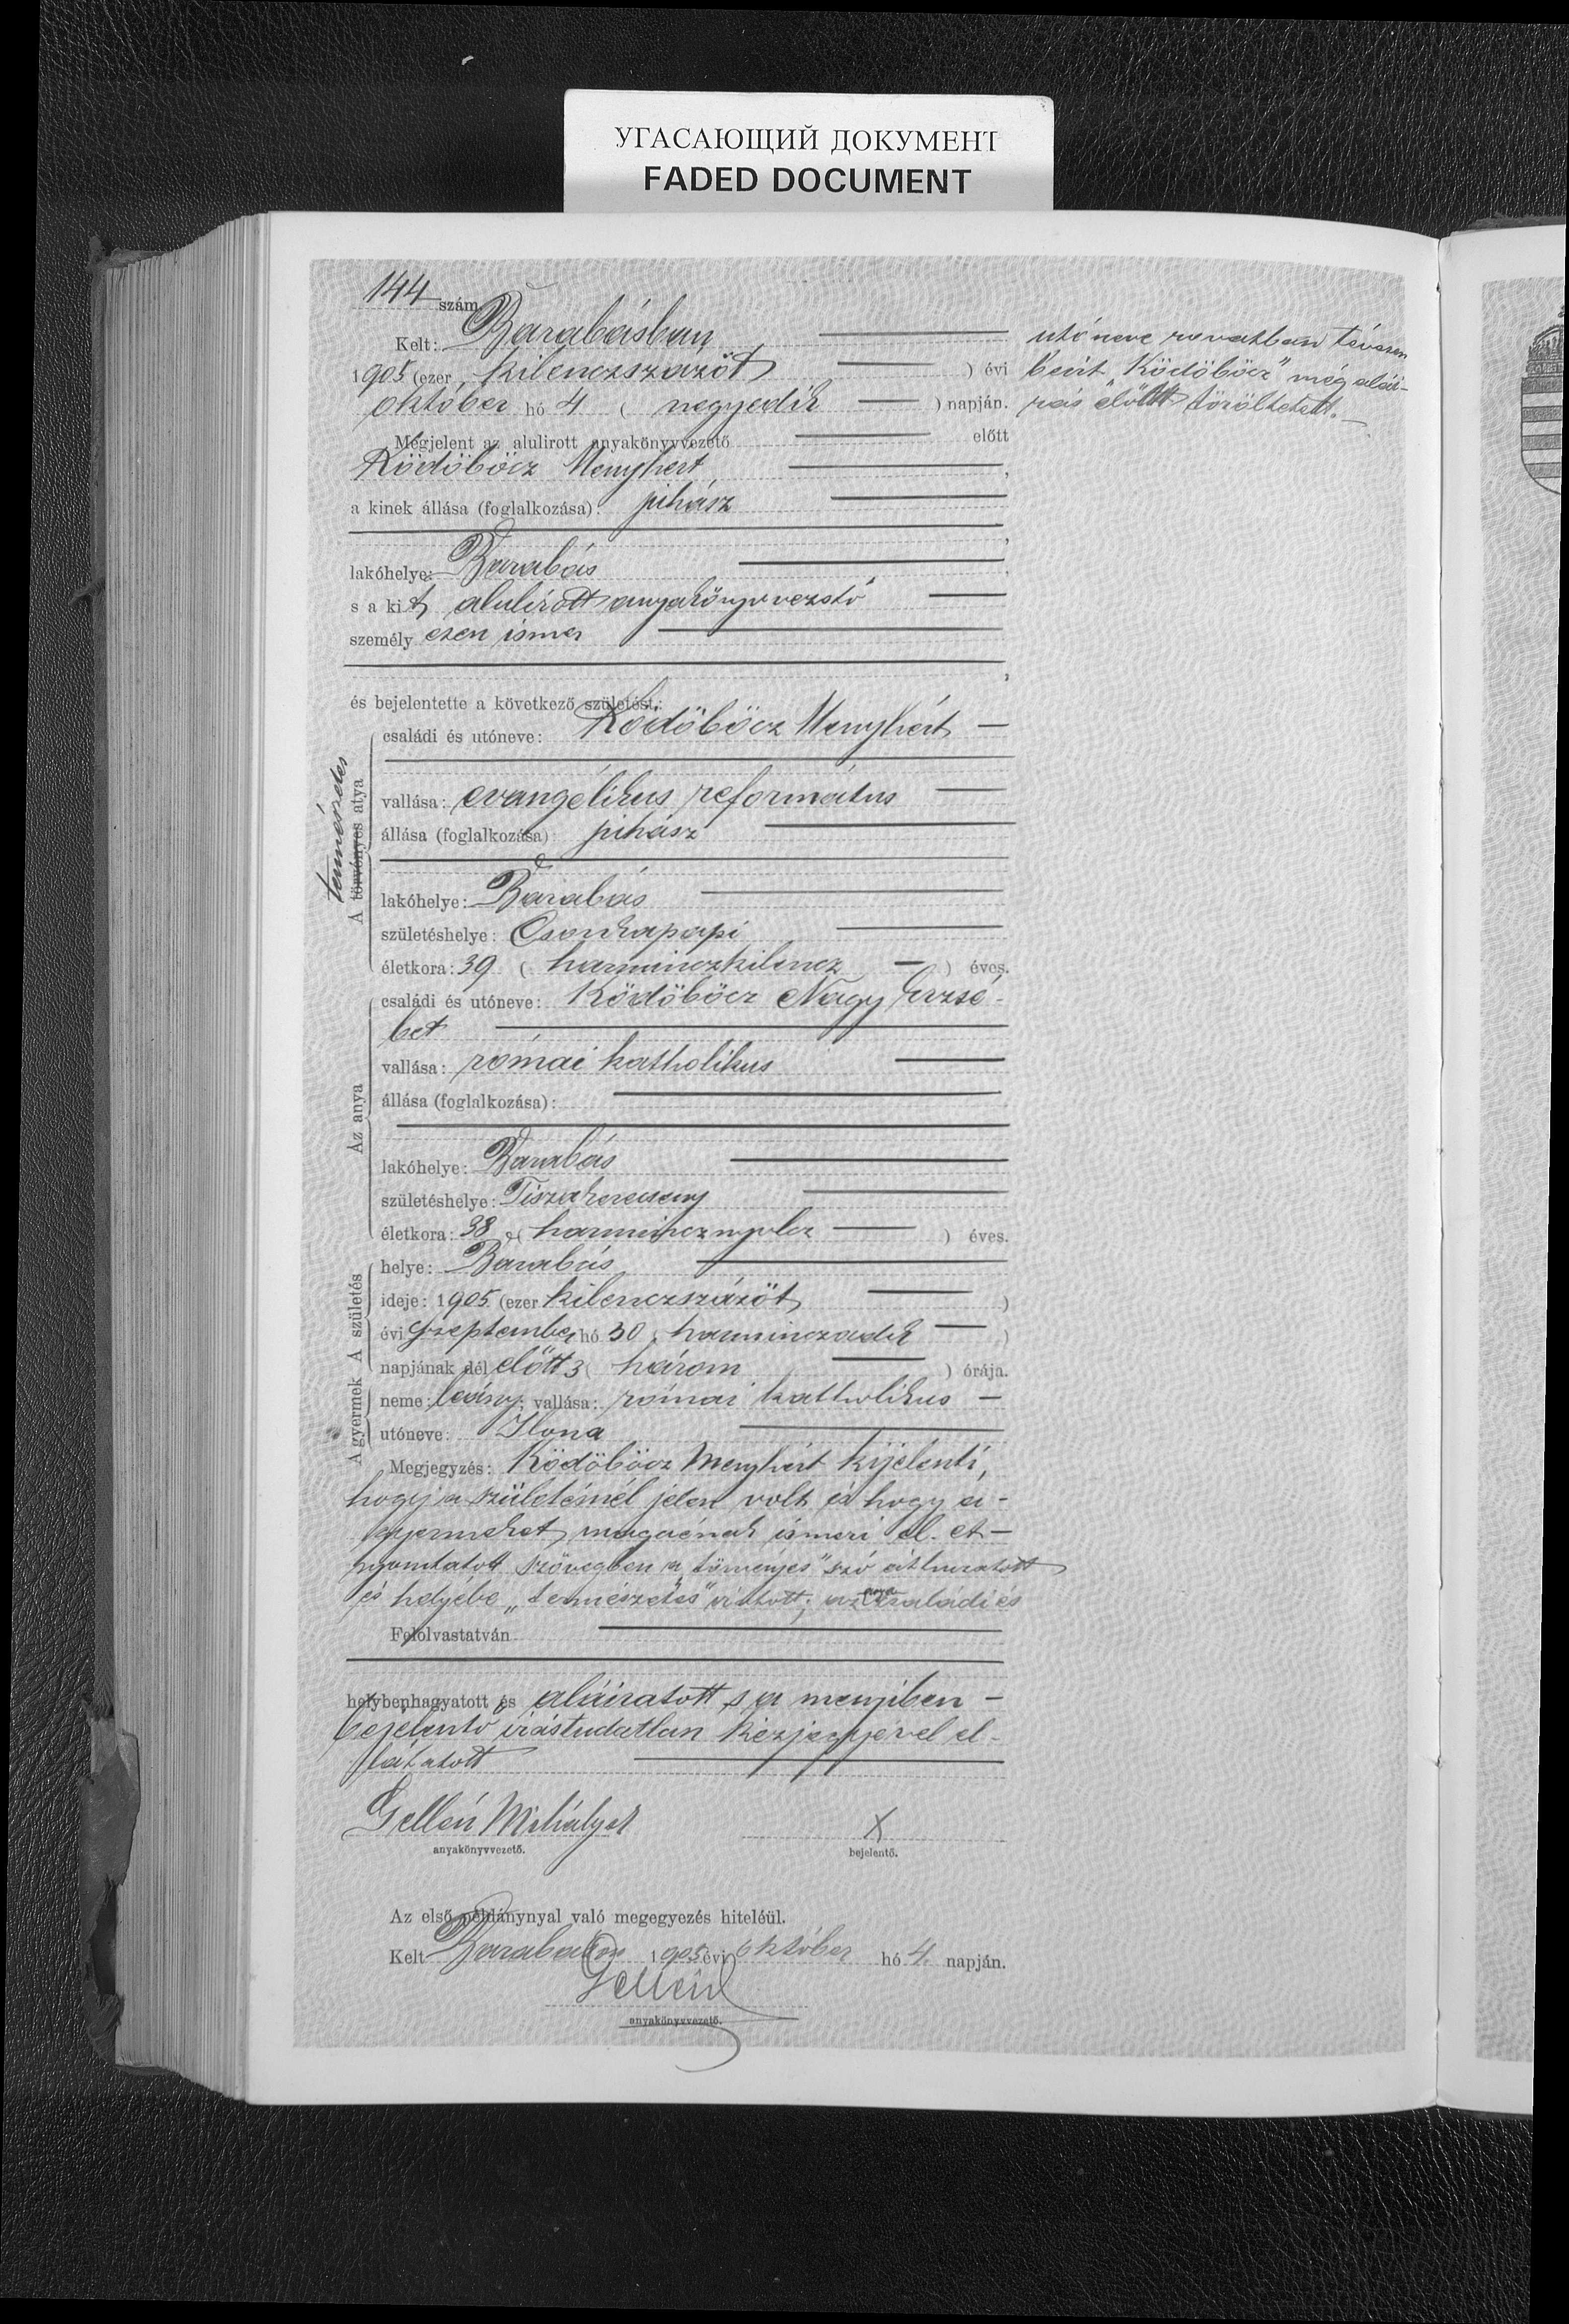 УГАСАЮЩИЙ ДОКУМЕНТ
FADED DOCUMENT
144 szám.
Kelt: Barabásban
1905 (ezer kilenczszázöt ) évi
október hó 4 ( negyedik ) napján.
Megjelent az alulirott anyakönyvvezető előtt
Ködöböcz Menyhért,
a kinek állása (foglalkozása): juhász
,
lakóhelye: Barabás,
s a kit alulirott anyakönyvvezető
személyesen ismer
,
és bejelentette a következő születést:
A törvényes atya
természetes
családi és utóneve: Ködöböcz Menyhért
vallása: evangélikus református
állása (foglalkozása): juhász
lakóhelye: Barabás
születéshelye: Csonkapapi
életkora: 39 ( harminczkilencz ) éves.
Az anya
családi és utóneve: Ködöböcz Nagy Erzsé-
bet
vallása: római katholikus
állása (foglalkozása):
lakóhelye: Barabás
születéshelye: Tiszakerecseny
életkora: 38 ( harmincznyolcz ) éves.
A születés
helye: Barabás
ideje: 1905 (ezer kilenczszázöt )
évi szeptember hó 30 ( harminczadik )
napjának dél előtt 3 ( három ) órája.
A gyermek
neme: leány; vallása: római katholikus
utóneve: Ilona
Megjegyzés: Ködöböcz Menyhért kijelenti,
hogy a születésnél jelen volt és hogy a
gyermeket magáénak ismeri el. A
nyomtatott szövegben a „törvényes" szó áthuzatott
és helyébe „természetes" iratott; az anya családi és
utóneve rovatban tévesen
beirt „Ködöböcz" még aláí-
rás előtt töröltetett.
Felolvastatván
helybenhagyatott és aláiratott s a menyiben
bejelentő irástudatlan kézjegyével el-
látatott
Gellén Mihály
anyakönyvvezető.
X
bejelentő.
Az első példánynyal való megegyezés hiteléül.
Kelt Barabáson 1905 évi október hó 4. napján.
Gellén
anyakönyvvezető.